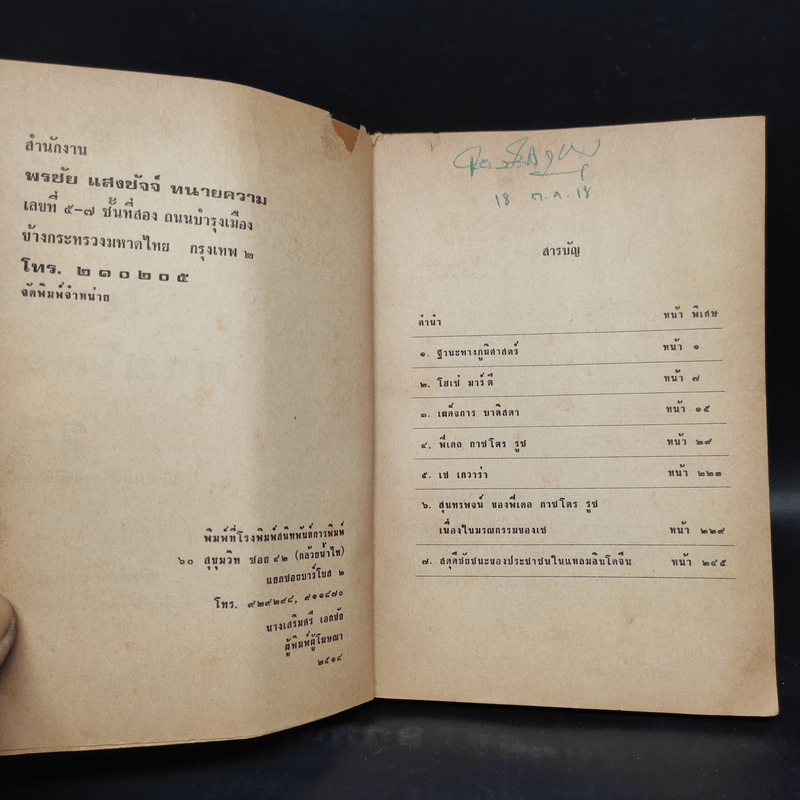 สำนักงาน
พรชัย แสงชัจจ์ ทนายความ
เลขที่ ๕-๗ ชั้นที่สอง ถนนบำรุงเมือง
ข้างกระทรวงมหาดไทย กรุงเทพ ๒
โทร. ๒๑๐๒๐๕
จัดพิมพ์จำหน่าย
พิมพ์ที่โรงพิมพ์สนิทพันธ์การพิมพ์
๖๐ สุขุมวิท ซอย ๔๒ (กล้วยน้ำไท)
แยกซอยบาร์โบส ๒
โทร. ๙๒๙๒๙๘, ๙๑๑๔๗๐
นางเสริมศรี เอกชัย
ผู้พิมพ์ผู้โฆษณา
๒๕๑๘
18 ต.ค. 18
สารบัญ
คำนำ หน้า พิเศษ
๑. ฐานะทางภูมิศาสตร์ หน้า ๑
๒. โฮเซ่ มาร์ตี หน้า ๗
๓. เผด็จการ บาติสตา หน้า ๑๕
๔. ฟีเดล กาชโตร รูซ หน้า ๒๙
๕. เช เกวาร่า หน้า ๒๒๑
๖. สุนทรพจน์ ของฟีเดล กาชโตร รูซ
เนื่องในมรณกรรมของเช หน้า ๒๒๙
๗. สดุดีชัยชนะของประชาชนในแหลมอินโดจีน หน้า ๒๔๕